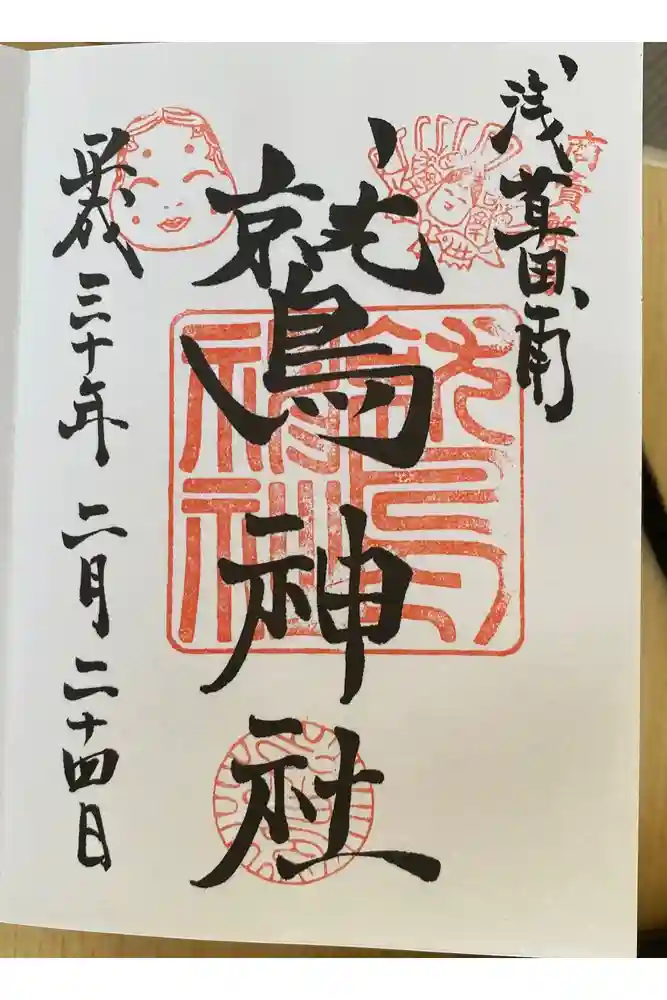 浅草田甫
商売繁
鷲神社
鷲神社
平成三十年二月二十四日